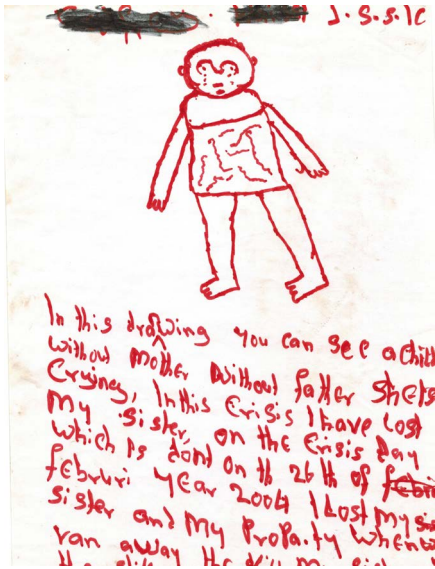 J.S.S.1C
In this drawing you can see a child
without Mother Without father She is
Crying, In this Crisis I have Lost
My sister, on the Crisis day
which is dond on th 26 th of
februri year 2004 I Lost My
sister and My Property When
ran away the Kill My